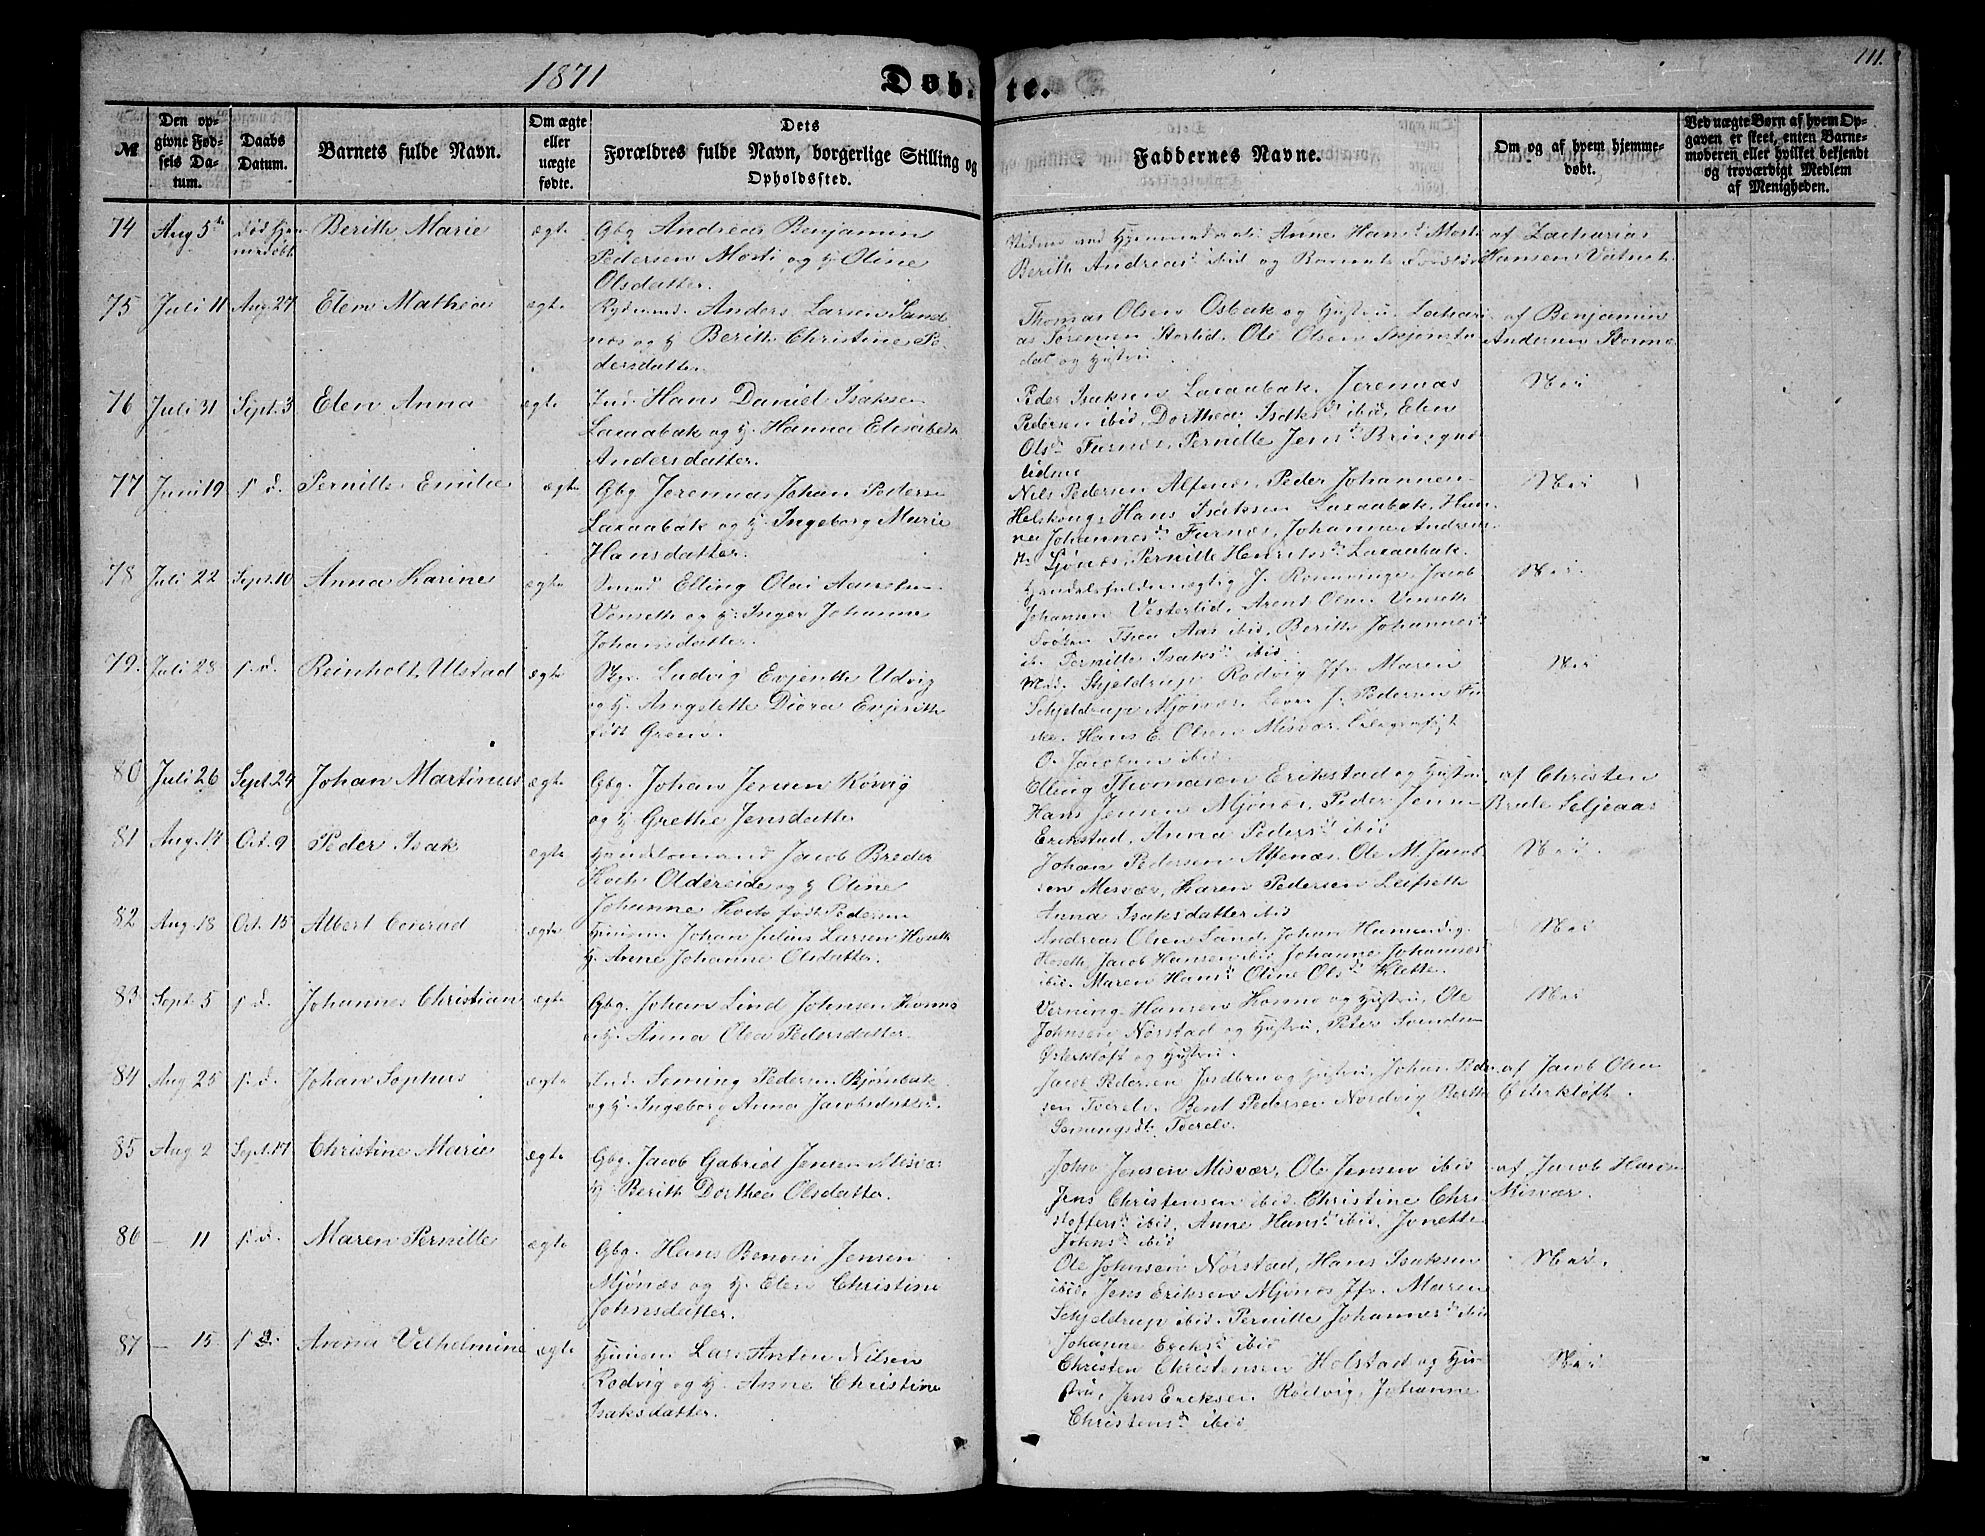 1871
Døbte.
111.
№
Den opgivne Fødsels Datum.
Daabs Datum.
Barnets fulde Navn.
Om ægte eller uægte fødte.
Dets Forældres fulde Navn, borgerlige Stilling og Opholdssted.
Faddernes Navne.
Om og af hvem hjemmedøbt.
Ved uægte Børn af hvem Opgaven er skeet, enten Barnemoderen eller hvilket bekjendt og troværdigt Medlem af Menigheden.
74 Aug 5 Berith Marie ægte Gbg Andreas Benjamin
Pedersen Mosti og H. Oline
Olsdatter.
Anne Hans d. Mosti
Berith Andreas d. ibid og Barnets
af Zacharias
Hansen Vatnet
75 Juli 11 Aug 27 Elen Mathea ægte Anders Larsen Sand-
næs og H Berith Christine Pe-
dersdatter
Thomas Olsen Osbak og Hustru, Zachari-
as Sørensen Storlid, Ole Olsen Skjønsta-
dal og Hustru
af Benjamin
Andersen
76 Juli 31 Sept. 3 Elen Anna ægte Ind. Hans Daniel Isaksen
Laxaabak og H. Hanna Elisabeth
Andersdatter.
Peder Isaksen Laxaabak, Jeremias
Pedersen ibid, Dorthea Isaks d. ibid, Elen
Ols d. Furnæs, Pernille Jens d. Bringsli-
lidmo
Nei
77 Juni 19 s. d. Pernille Emilie ægte Gbg Jeremias Johan Pedersen
Laxaabak og H. Ingeborg Marie
Hansdatter.
Nils Pedersen Alfenæs, Peder Johannesen
Helskong, Hans Isaksen Laxaabak, Han-
na Johannes d. Furnæs, Johanna Anders
d. Sjønæs, Pernille Henriks d. Laxaabak.
Nei
78 Juli 22 Sept. 10 Anna Karine ægte Smed Elling Olai Aansen
Venseth og H. Inger Johanna
Johansdatter.
Handelsfuldmægtig J. Rosenvinge, Jacob
Johansen Vesterlid, Arent Olsen Venseth
Thea Aas ibid, Berith Johannes d.
ib. Pernille Isaks d. ibid
Nei
79. Juli 28 s. d. Reinholt Ulstad ægte Ludvig Evjenth Udvig
og H. Angelette Diora Evjenth
født Green.
Mad. Skjeldrup Rødvig, Jfr. Maren
Schjeldrup Mjønæs, J. Pedersen Fu-
ske. Hans E. Olsen Misvær, Telegrafist
O. Jacobsen ibid.
Nei
80 Juli 26 Sept. 24 Johan Martinus ægte Gbg. Johan Jensen Kårvig
og H Grethe Jensdatter
Elling Thomasen Erikstad og Hustru
Hans Jensen Mjønæs, Peder Jensen
Erikstad, Anna Peders d. ibid
af Christen
Brude Seljeaas
81 Aug. 14 Oct. 9 Peder Isak ægte Handelsmand Jacob Breder
Koch Oldereide og H Oline
Johanne Koch født Pedersen
Johan Pedersen Alfenæs, Ole M. Jacob-
sen Misvær, Karen Pedersen Leifseth
Anna Isaksdatter ibid
Nei.
82 Aug. 18 Oct. 15 Albert Conrad ægte Huusm. Johan Julius Larsen Hoseth
H. Anne Johanne Olsdatter.
Andreas Olsen Sand, Johan
Hoseth, Jacob Hansen ibid Johanne Johannes d.
ibid. Maren Hans d. Oline Ols d. Klette.
Nei
83 Sept. 5 s. d. Johannes Christian ægte Gbg. Johan Lind Johnsen Kvanmo
og H. Anna Olea Pedersdatter.
Verning Hansen Kvanmo og Hustru, Ole
Johnsen Nørstad og Hustru, Peter Svendsen
Østerkløft og Hustru.
Nei
84 Aug 25 s. d. Johan Sophus ægte Ind. Seming Pedersen Bjørnbak
og H. Ingeborg Anna Jacobsdatter.
Jacob Pedersen Jordbru og Hustru, Johan Peder-
sen Tverelv. Bent Pedersen Nordvig Berith
Semingsdt. Tverelv.
af Jacob Olsen
Østerkløft.
85 Aug 2 Sept. 17 Christine Marie ægte Gbg. Jacob Gabriel Jensen Misvær
H. Berith Dorthea Olsdatter.
John Jensen Misvær, Ole Jensen ibid
Jens Christensen ibid, Christine Chri-
stoffers d. ibid, Anne Hans d. ibid, Jonette
Johns d. ibid
af Jacob Hansen
Misvær.
86 — 11 s. d. Maren Pernille ægte Gbg. Hans Benoni Jensen
Mjønæs og H. Elen Christine
Johnsdatter.
Ole Johnsen Nørstad, Hans Isaksen
ibid, Jens Eriksen Mjønæs Jfr. Maren
Schjeldrup ibid. Pernille Johannes d. ibid
Johanne Eriks d. ibid
Nei.
87 — 15 s. d. Anna Vilhelmine ægte Huusm Lars Anton Nilsen
Rødvig og H. Anne Christine
Isaksdatter.
Christen Christensen Holstad og Hu-
stru, Jens Eriksen Rødvig, Johanne
Christens d. ibid
Nei